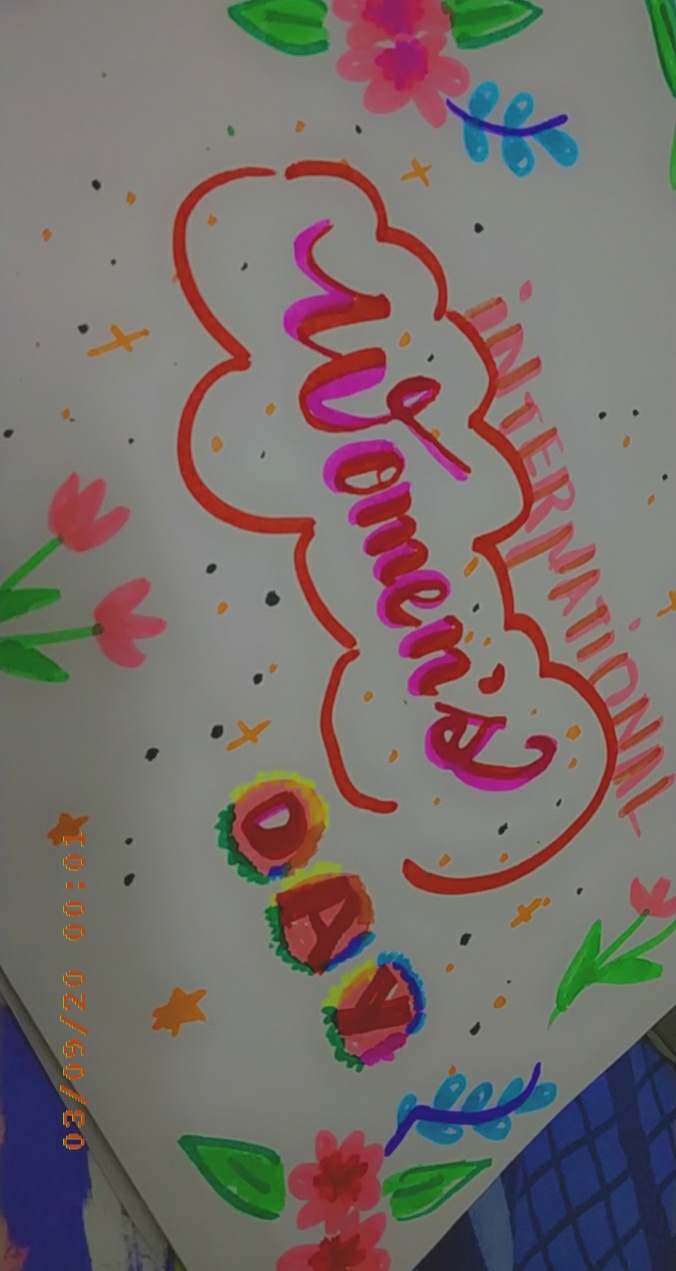 INTERNATIONAL
Women's
DAY
03/09/20 00:01